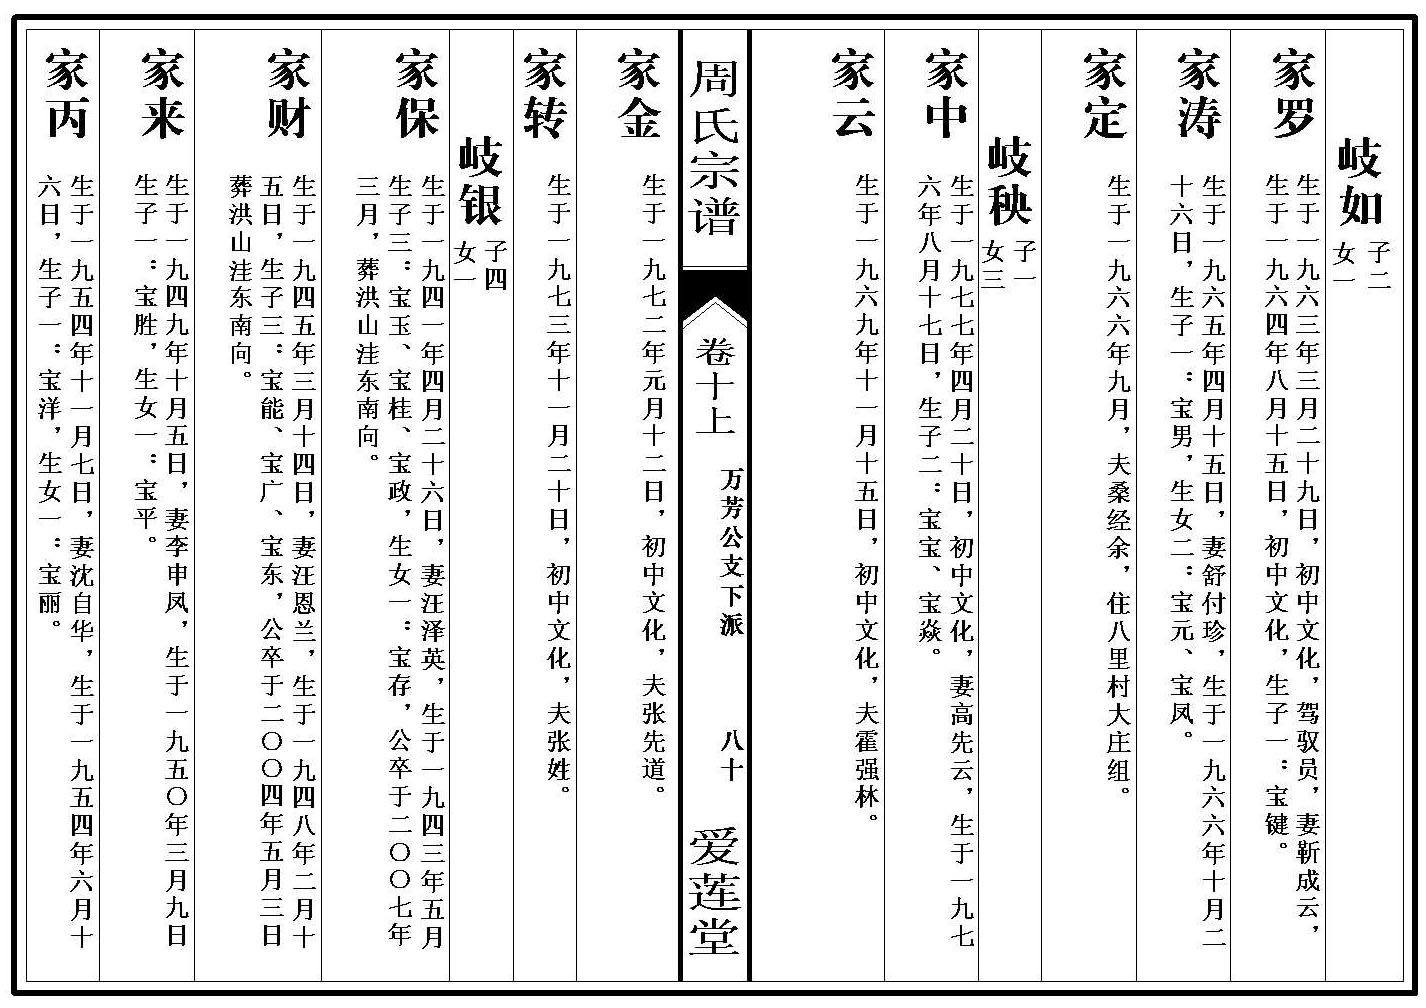 岐如
子二
女一
家罗
生于一九六三年三月二十九日，初中文化，驾驭员，妻靳成云，
生于一九六四年八月十五日，初中文化，生子一：宝键。
家涛
生于一九六五年四月十五日，妻舒付珍，生于一九六六年十月二
十六日，生子一：宝男，生女二：宝元、宝凤。
家定
生于一九六六年九月，夫桑经余，住八里村大庄组。
岐秧
子一
女三
家中
生于一九七七年四月二十日，初中文化，妻高先云，生于一九七
六年八月十七日，生子二：宝宝、宝焱。
家云
生于一九六九年十一月十五日，初中文化，夫霍强林。
周氏宗谱
卷十上
万芳公支下派
八十
爱莲堂
家金
生于一九七二年元月十二日，初中文化，夫张先道。
家转
生于一九七三年十一月二十日，初中文化，夫张姓。
岐银
子四
女一
家保
生于一九四一年四月二十六日，妻汪泽英，生于一九四三年五月
生子三：宝玉、宝桂、宝政，生女一：宝存，公卒于二〇〇七年
三月，葬洪山洼东南向。
家财
生于一九四五年三月十四日，妻汪恩兰，生于一九四八年二月十
五日，生子三：宝能、宝广、宝东，公卒于二〇〇四年五月三日
葬洪山洼东南向。
家来
生于一九四九年十月五日，妻李申凤，生于一九五〇年三月九日
生子一：宝胜，生女一：宝平。
家丙
生于一九五四年十一月七日，妻沈自华，生于一九五四年六月十
六日，生子一：宝洋，生女一：宝丽。